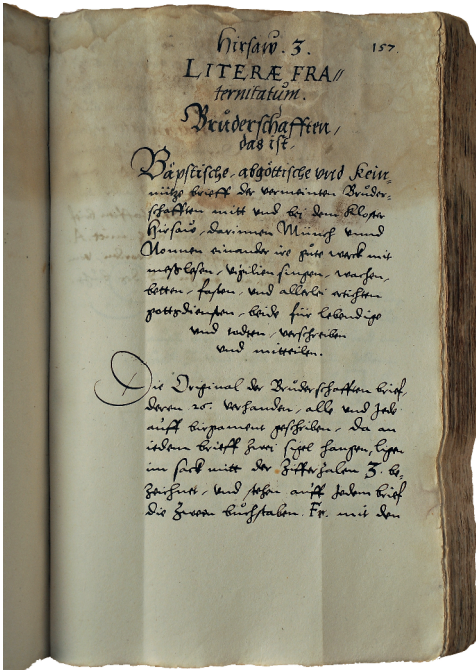 Hirsaw. 3.
157
LITERÆ FRA//
ternitatum.
Brůderschafften,
das ist.
Bäpstische, abgöttische vnd kein-
nütze brieff der vermeinten Brůder-
schafften mitt vnd bei dem Kloster
Hirsaw, darinnen Münch vnnd
Nonnen einander ire gůte werck mit
meßlesen, vigilien singen, wachen,
betten, fasten, vnd allerlei ertichten
gottsdiensten, beide für lebendige
vnd todten, verschreiben
vnd mitteilen.
Die Original der Brůderschafften brief,
deren 26. verhanden, alle vnd jede
auff birgament geschriben, da an
iedem brieff zwei sigel hangen, ligen
im sack mitt der Zifferzalen 3. be-
zeichnet, vnd stehn auff jedem brief
die zween bůchstaben. Fr. mit den